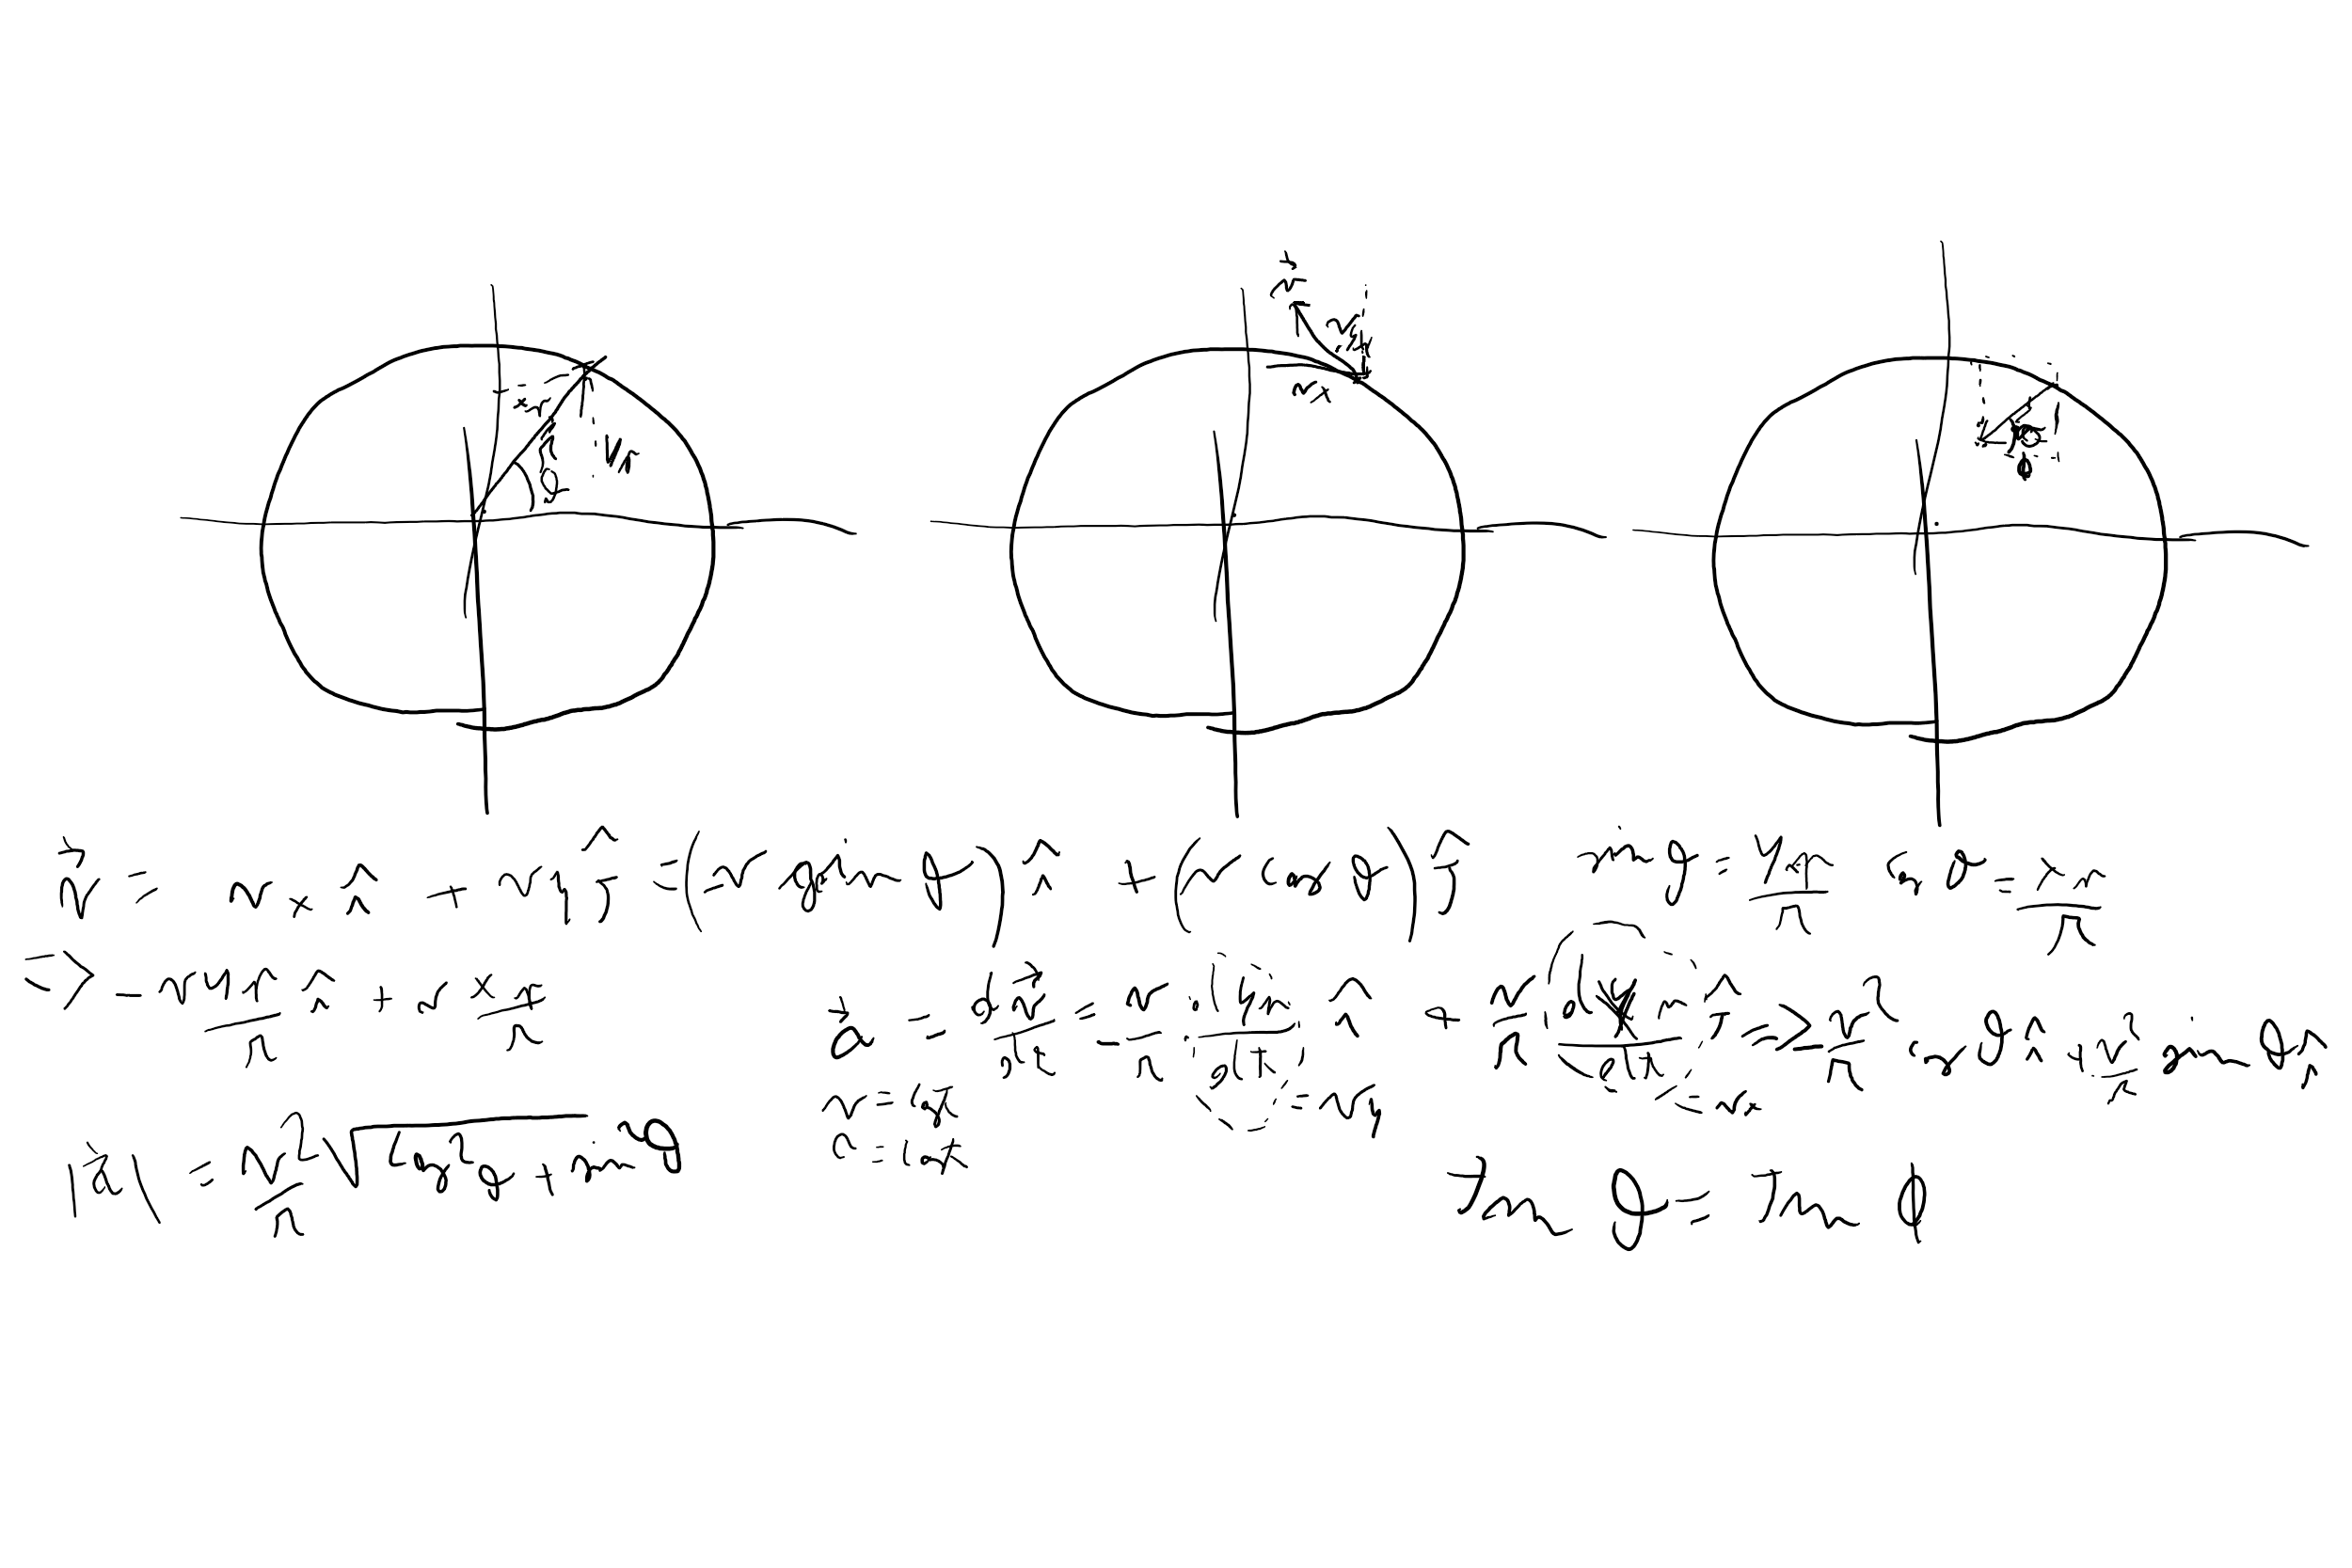 x_r
r
θ
y_r
v⃗
v_y
v_x
φ
v⃗ = v_x î + v_y ĵ = (-v sin θ) î + (v cos θ) ĵ   sin θ = y_r/r   cos θ = x_r/r
=> -v y_r/r î + v x_r/r
a⃗ = dv⃗/dt = -v/r · dy_r/dt î + v/r · dx_r/dt ĵ => -v²/r cos θ î + v²/r sin θ ĵ
= v_y
= v_x
v = cost
r = cost
|a⃗| = v²/r √(cos²θ + sin²θ)
tan θ = tan φ